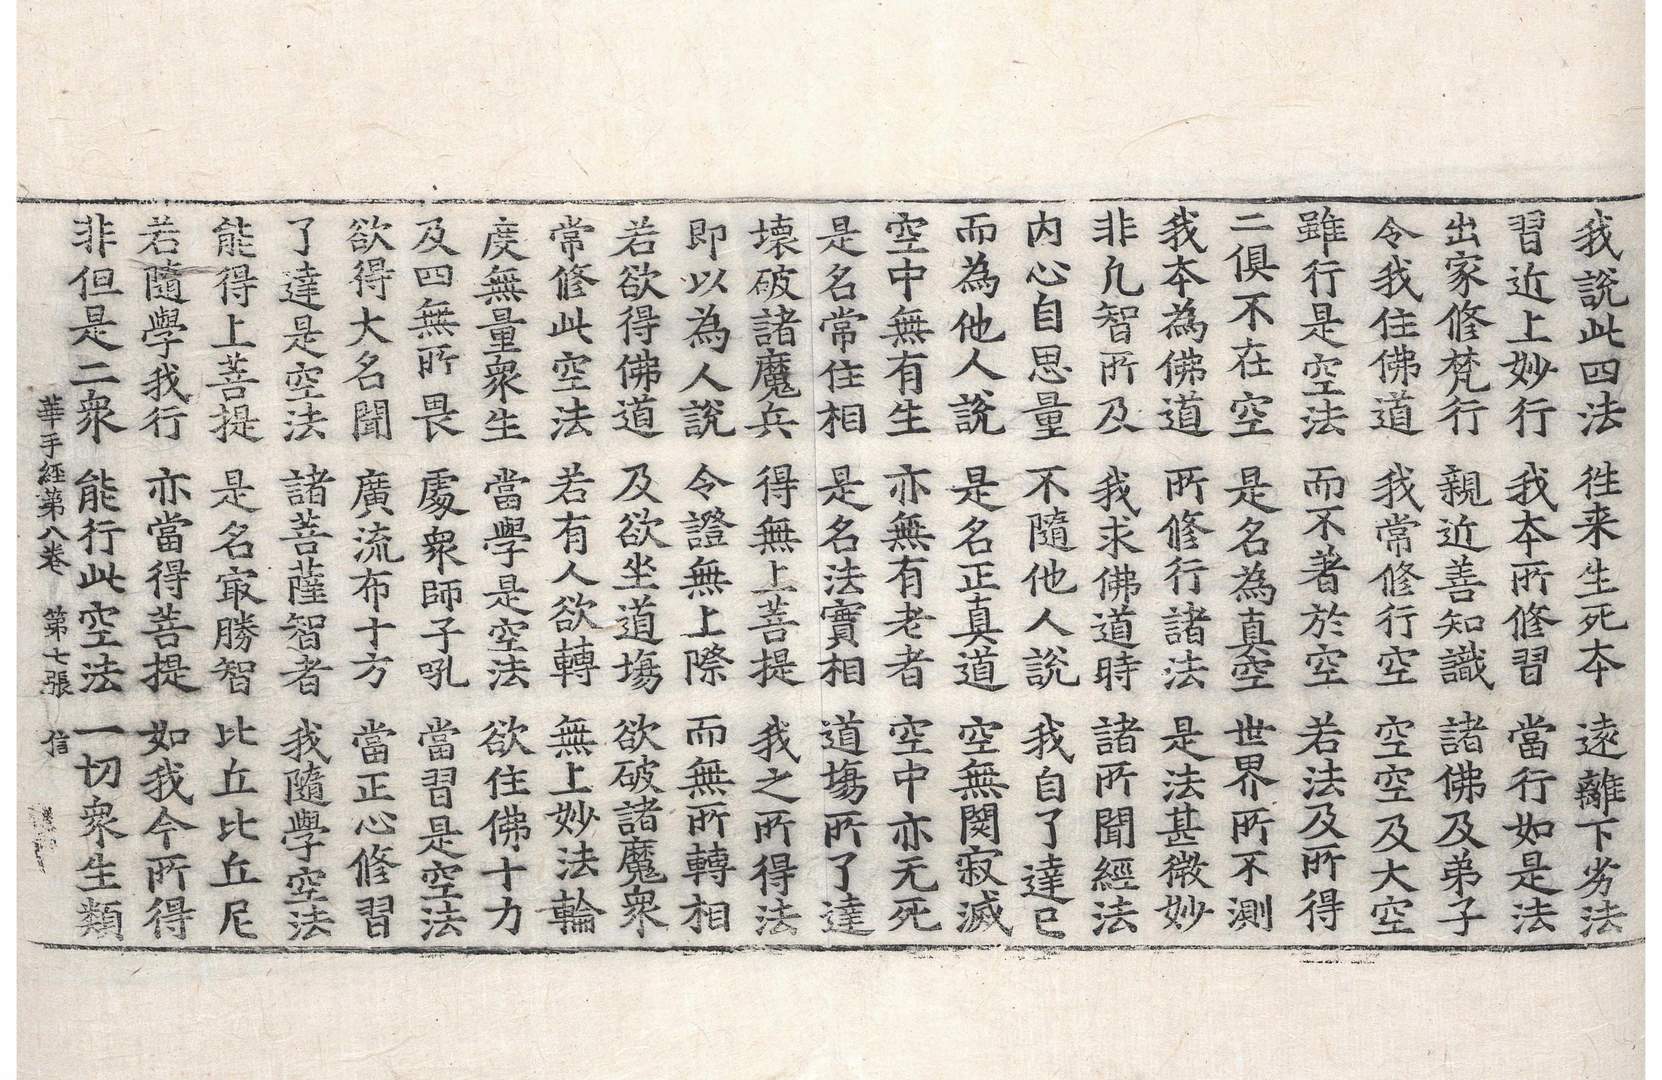 我說此四法 徃来生死夲 遠離下劣法
習近上妙行 我夲所修習 當行如是法
出家修梵行 親近善知識 諸佛及弟子
令我住佛道 我常修行空 空空及大空
雖行是空法 而不著於空 若法及所得
二俱不在空 是名為真空 世界所不測
我夲為佛道 所修行諸法 是法甚微妙
非凢智所及 我求佛道時 諸所聞經法
内心自思量 不隨他人說 我自了達已
而為他人說 是名正真道 空無閡寂滅
空中無有生 亦無有老者 空中亦无死
是名常住相 是名法實相 道場所了達
壞破諸魔兵 得無上菩提 我之所得法
即以為人說 令證無上際 而無所轉相
若欲得佛道 及欲坐道場 欲破諸魔衆
常修此空法 若有人欲轉 無上妙法輪
度無量衆生 當學是空法 欲住佛十力
及四無所畏 處衆師子吼 當習是空法
欲得大名聞 廣流布十方 當正心修習
了達是空法 諸菩薩智者 我隨學空法
能得上菩提 是名㝡勝智 比丘比丘尼
若隨學我行 亦當得菩提 如我今所得
非但是二衆 能行此空法 一切衆生類
華手經第八卷 第七張 信